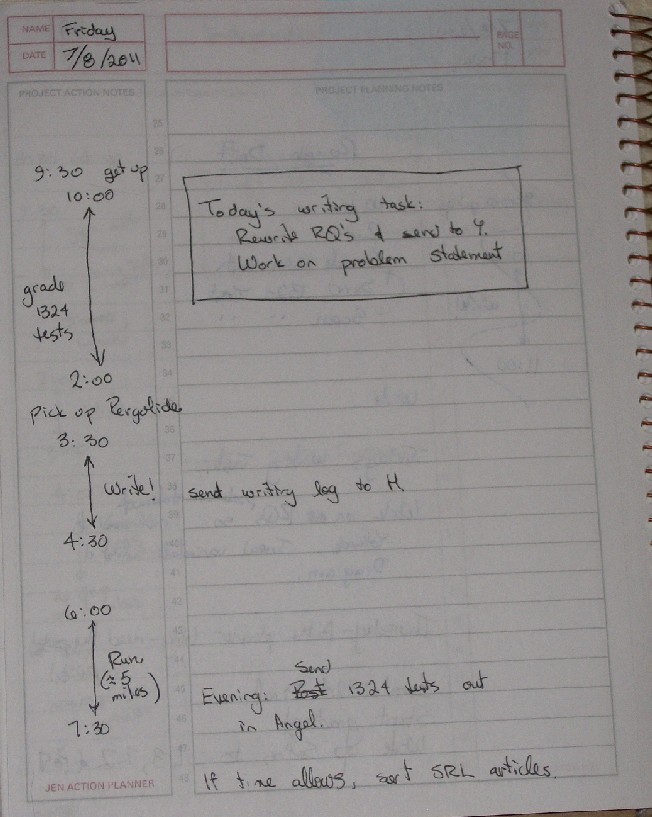 NAME Friday
DATE 7/8/2011
PAGE NO.
PROJECT ACTION NOTES
PROJECT PLANNING NOTES
9:30 get up
10:00
Today's writing task:
Rewrite RQ's & send to Y.
Work on problem statement
grade
1324
tests
2:00
Pick up Pergolide
3:30
Write!
send writing log to H
4:30
6:00
Run
(≈5
miles)
7:30
Send
Evening: Post 1324 tests out
in Angel.
If time allows, sort SRL articles.
JEN ACTION PLANNER